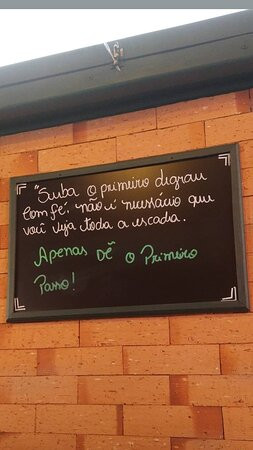 "Suba o primeiro degrau
com fé. não é necessário que
você veja toda a escada.
Apenas Dê o Primeiro
Passo!